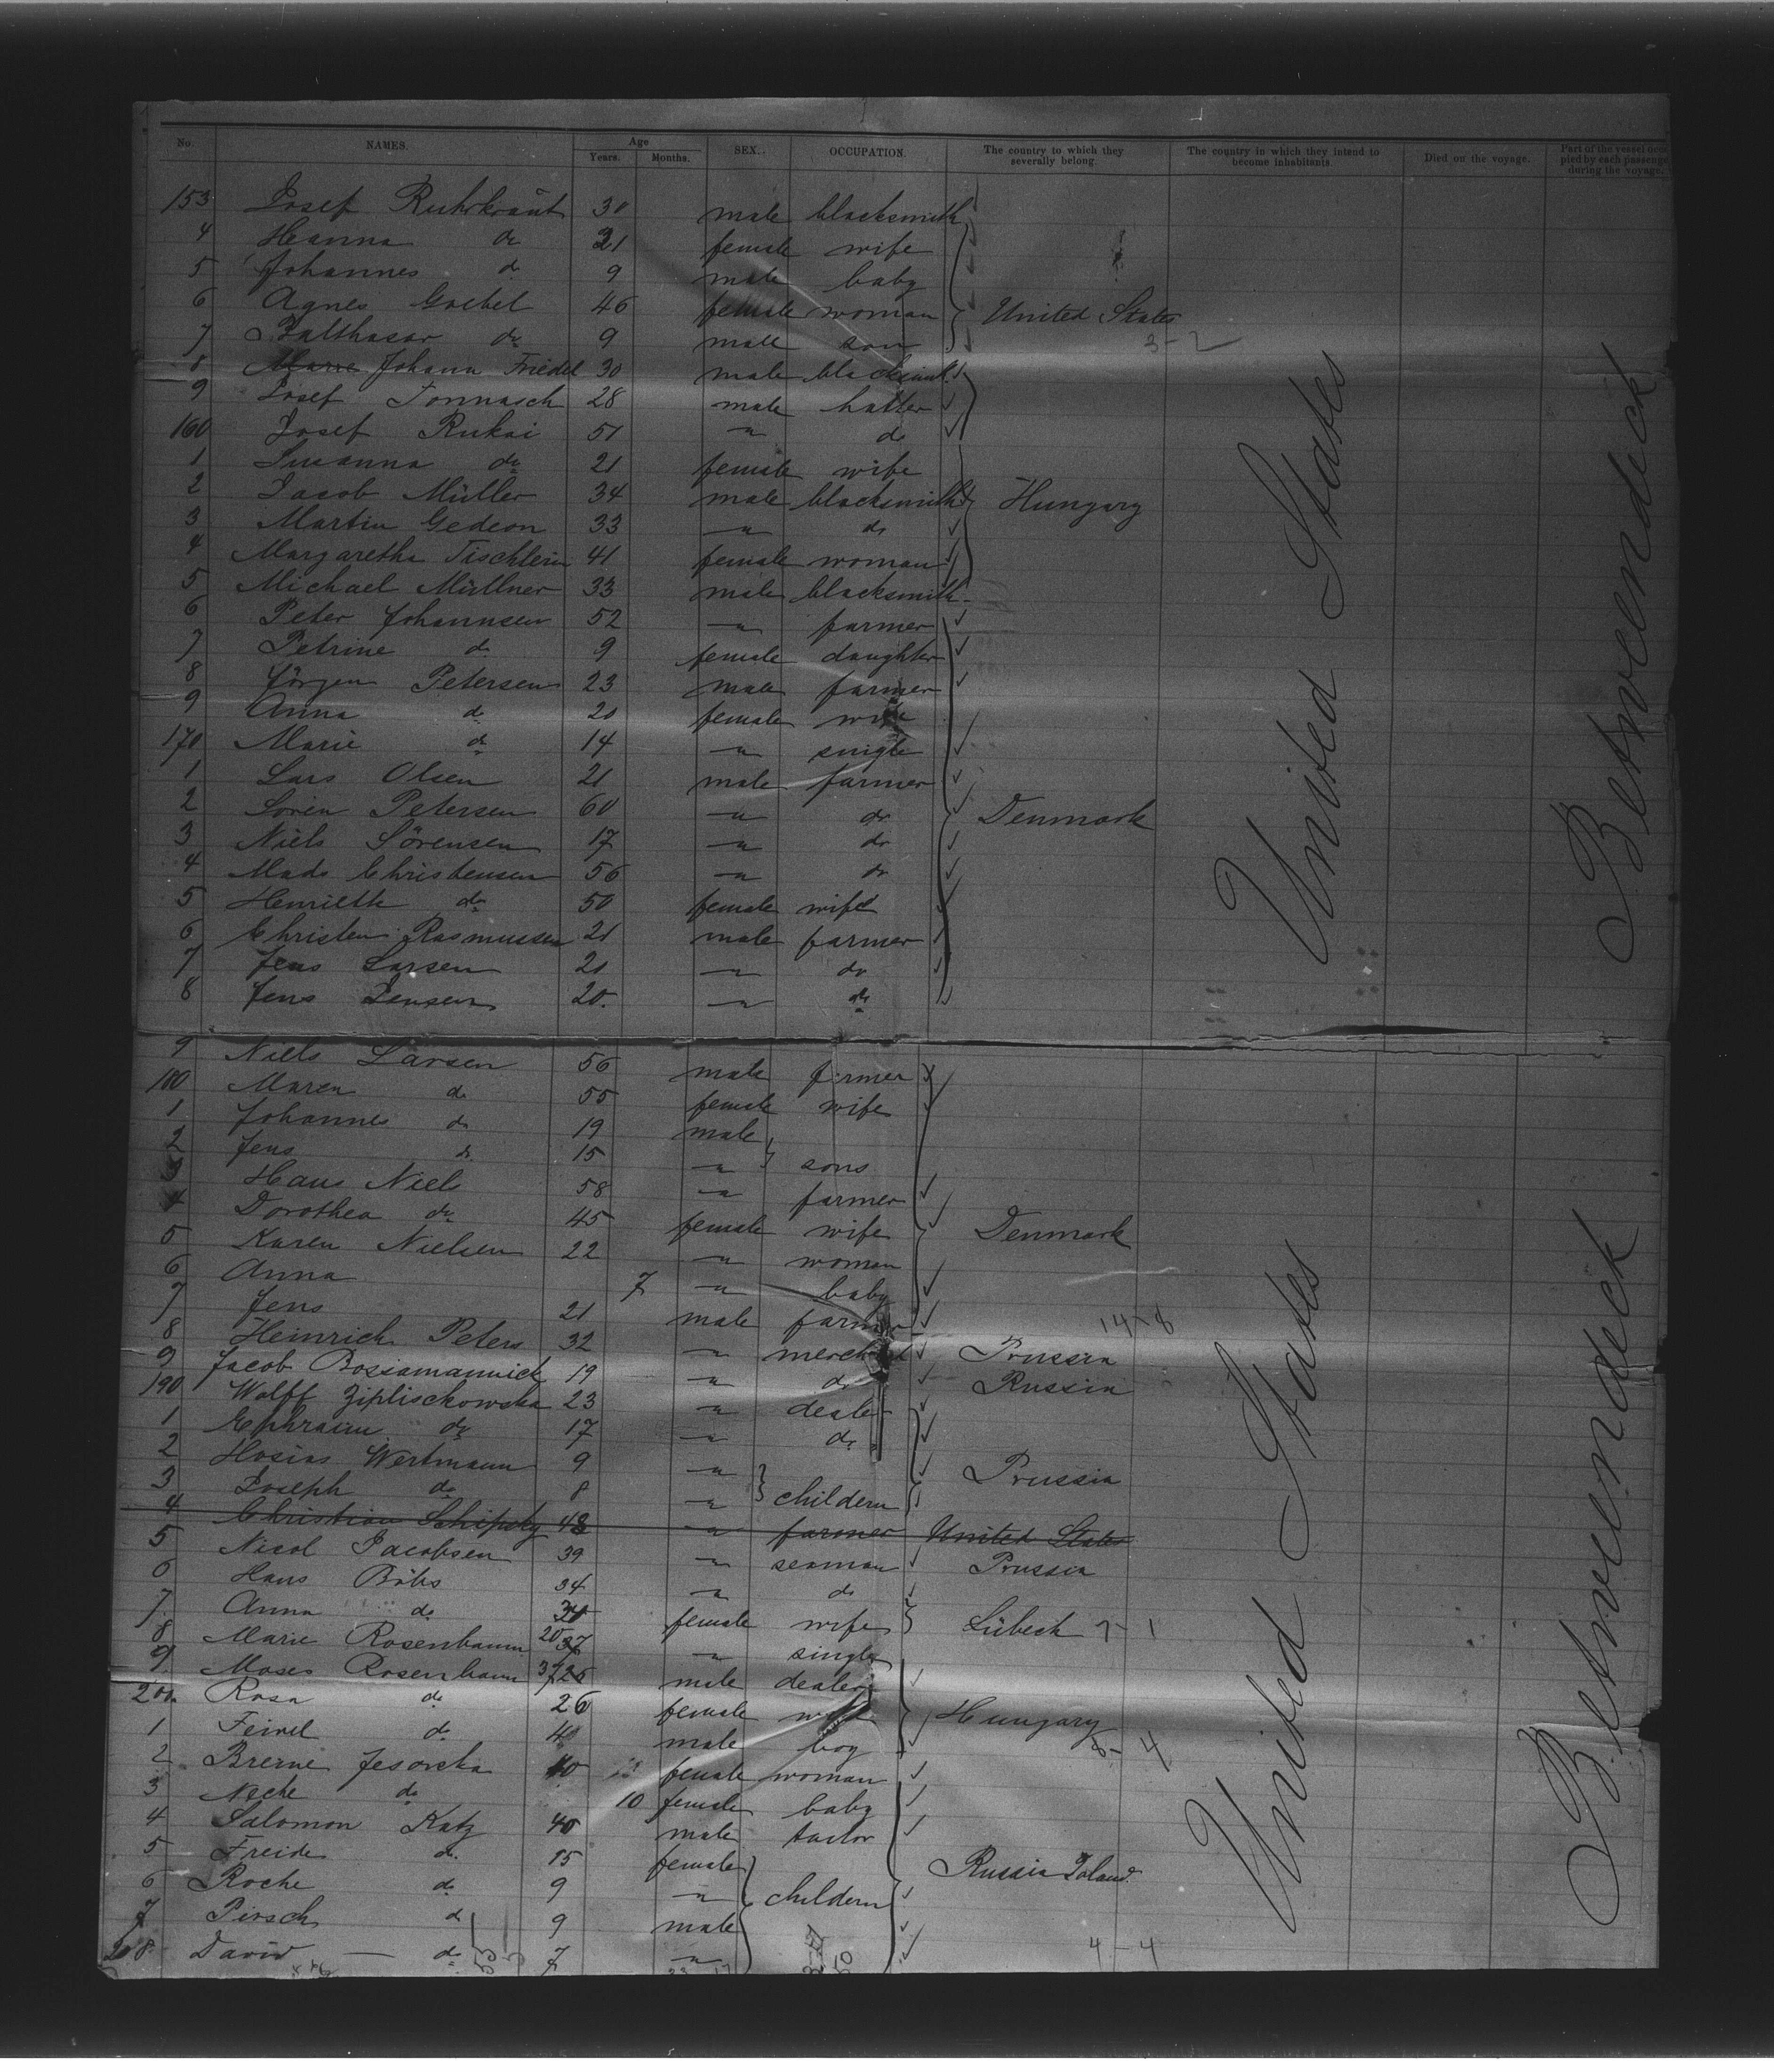 No. NAMES. Age SEX. OCCUPATION. The country to which they severally belong. The country in which they intend to become inhabitants. Died on the voyage. Part of the vessel occupied by each passenger during the voyage.
Years. Months.
153 Josef Ruhrkraut 30 male blacksmith
4 Hanna do 21 female wife
5 Johannes do 9 male baby
6 Agnes Goebel 46 female woman United States
7 Balthasar do 9 male son 3-2
8 Johann Friedel 30 male blacksmith
9 Josef Tonnasch 28 male hatter
160 Josef Rukai 51 " do
1 Susanna do 21 female wife
2 Jacob Müller 34 male blacksmith Hungary
3 Martin Gedeon 33 " do
4 Margaretha Tischlerin 41 female woman
5 Michael Müllner 33 male blacksmith
6 Peter Johannsen 52 " farmer
7 Petrine do 9 female daughter
8 Jörgen Petersen 23 male farmer
9 Anna do 20 female wife
170 Marie do 14 " single
1 Lars Olsen 21 male farmer
2 Sören Petersen 60 " do Denmark
3 Niels Sörensen 17 " do
4 Mads Christensen 56 " do
5 Henriette do 50 female wife
6 Christen Rasmussen 21 male farmer
7 Jens Larsen 21 " do
8 Jens Jensen 20 " do
United States
Betweendeck
9 Niels Larsen 56 male farmer
180 Maren do 55 female wife
1 Johannes do 19 male
2 Jens do 15 " sons
3 Hans Niels 58 " farmer
4 Dorothea do 45 female wife Denmark
5 Karen Nielsen 22 " woman
6 Anna 7 " baby
7 Jens 21 male farmer 14-8
8 Heinrich Peters 32 " merchant Prussia
9 Jacob 19 " do Russia
190 Wolff Ziplischkowska 23 " dealer
1 Ephraim do 17 " do
2 Hosias Wertmann 9 " Prussia
3 Joseph do 8 " childern
4 Christian Schipsky 48 " farmer United States
5 Nicol Jacobsen 39 " seaman Prussia
6 Hans Böhs 34 " do
7 Anna do 30 female wife Lübeck
8 Marie Rosenbaum 20 " single
9 Moses Rosenbaum 37 male dealer
200 Rosa do 26 female wife Hungary
1 Feiwel do 4 male boy
2 Breine Jesorska 40 female woman
3 Neche do 10 female baby
4 Salomon Katz 40 male tailor
5 Freide do 15 female Russia Poland
6 Roche do 9 " childern
7 Pirsch do 9 male
208 David do 7 " 4-4
United States
Betweendeck